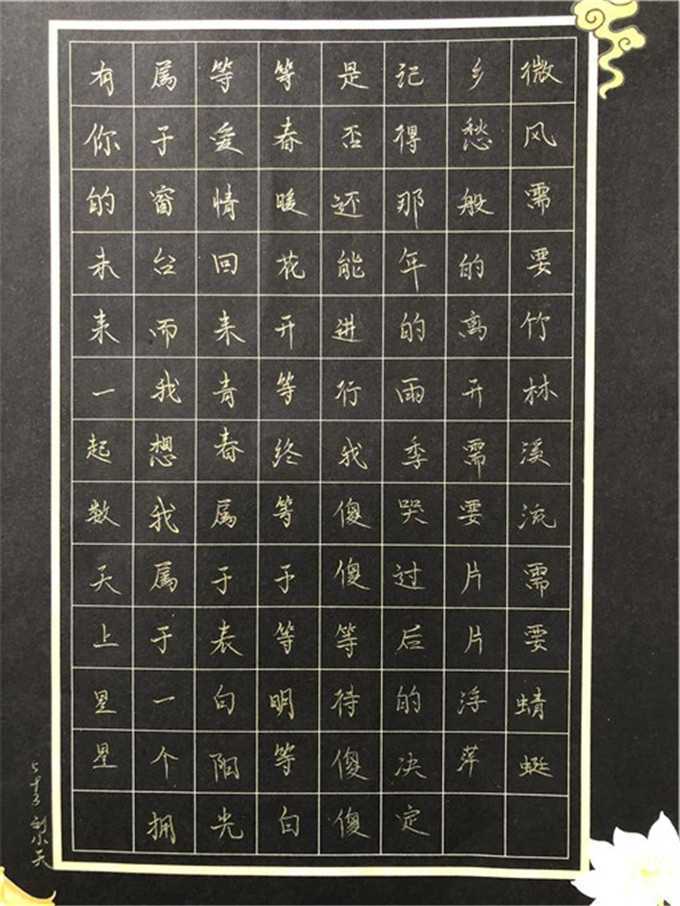 微风需要竹林溪流需要蜻蜓
乡愁般的离开需要片片浮萍
记得那年的雨季哭过后的决定
是否还能进行我傻傻等待傻傻
等春暖花开等终等于等明等白
等爱情回来青春属于表白阳光
属于窗台而我想我属于一个拥
有你的未来一起数天上星星